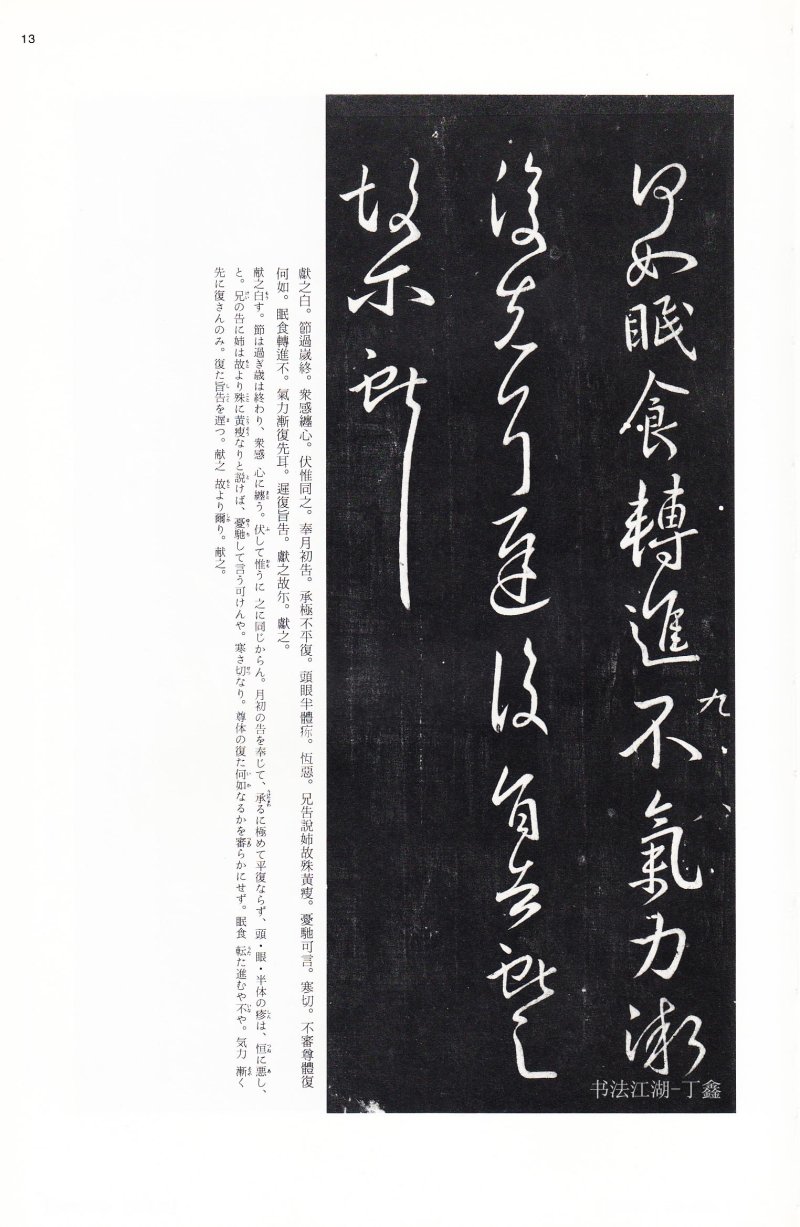 13
何如眠食轉進不氣力漸
復先耳遲復旨告獻之
故尓獻之
九
八
獻之白。節過歲終。衆感纏心。伏惟同之。奉月初告。承極不平復。頭眼半體疹。恆惡。兄告說姉故殊黃瘦。憂馳可言。寒切。不審尊體復
何如。眠食轉進不。氣力漸復先耳。遲復旨告。獻之故尓。獻之。
献之白す。節は過ぎ歳は終わり、衆感 心に纏う。伏して惟うに 之に同じからん。月初の告を奉じて、承るに極めて平復ならず、頭・眼・半体の疹は、恒に悪し、
と。兄の告に姉は故より殊に黄瘦なりと説けば、憂馳して言う可けんや。寒さ切なり。尊体の復た何如なるかを審らかにせず。眠食 転た進むや不や。気力 漸く
先に復さんのみ。復た旨告を遅つ。献之 故より爾り。献之。
书法江湖-丁鑫